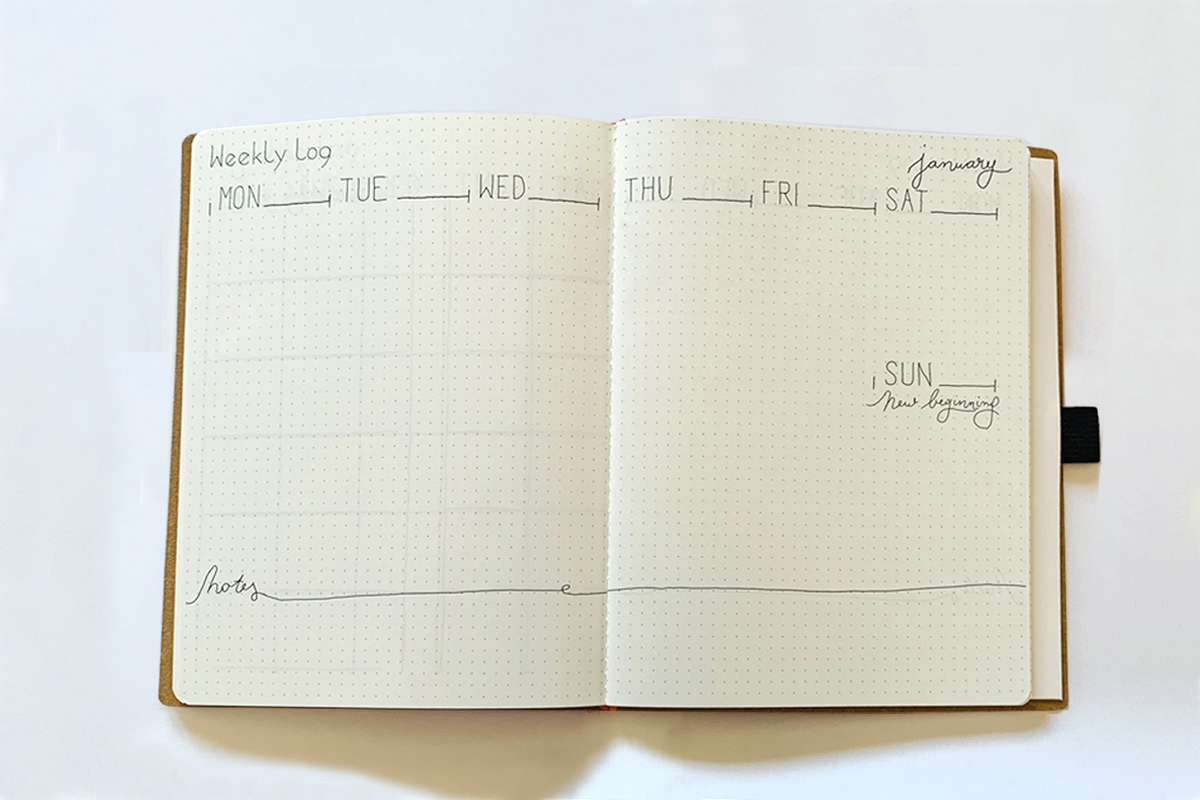 Weekly Log
january
MON TUE WED THU FRI SAT
SUN
New beginning
notes